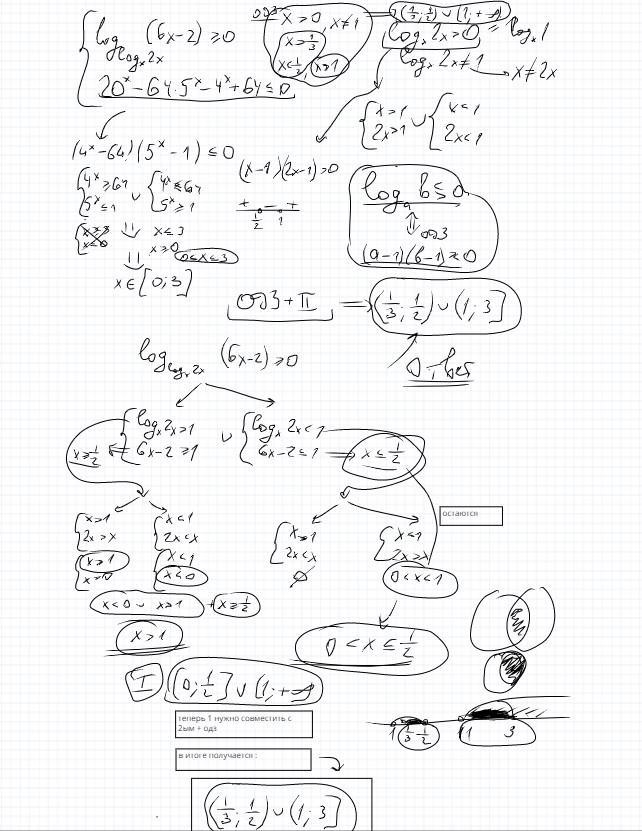 log_{log_x 2x} (6x-2) ≥ 0
20^x - 64·5^x - 4^x + 64 ≤ 0
ОДЗ x > 0, x ≠ 1
x > 1/3
x < 1/2, x > 1
(1/3; 1/2) ∪ (1; +∞)
log_x 2x > 0 = log_x 1
log_x 2x ≠ 1 → x ≠ 2x
{ x > 1 ∪ { x < 1
2x > 1 2x < 1
(4^x - 64)(5^x - 1) ≤ 0
(x-1)(2x-1) > 0
{ 4^x ≥ 64 ∪ { 4^x ≤ 64
5^x ≤ 1 5^x ≥ 1
+ - +
1/2 1
x ≥ 3 x ≤ 3
x ≤ 0 x ≥ 0
0 ≤ x ≤ 3
x ∈ [0; 3]
log_a b ≤ 0
⇕ ОДЗ
(a-1)(b-1) ≤ 0
ОДЗ + II ⇒ (1/3; 1/2) ∪ (1; 3]
Ответ
log_{log_x 2x} (6x-2) ≥ 0
{ log_x 2x > 1 ∪ { log_x 2x < 1
6x-2 ≥ 1 6x-2 ≤ 1
x ≥ 1/2
x ≤ 1/2
остаются
{ x > 1 { x < 1 { x > 1 { x < 1
2x > x 2x < x 2x < x 2x > x
{ x > 1 { x < 1 ∅ 0 < x < 1
x > 0 x < 0
x < 0 ∪ x > 1 + x ≥ 1/2
x > 1
0 < x ≤ 1/2
I (0; 1/2] ∪ (1; +∞)
теперь 1 нужно совместить с
2ым + одз
1/3 1/2 1 3
в итоге получается :
(1/3; 1/2) ∪ (1; 3]